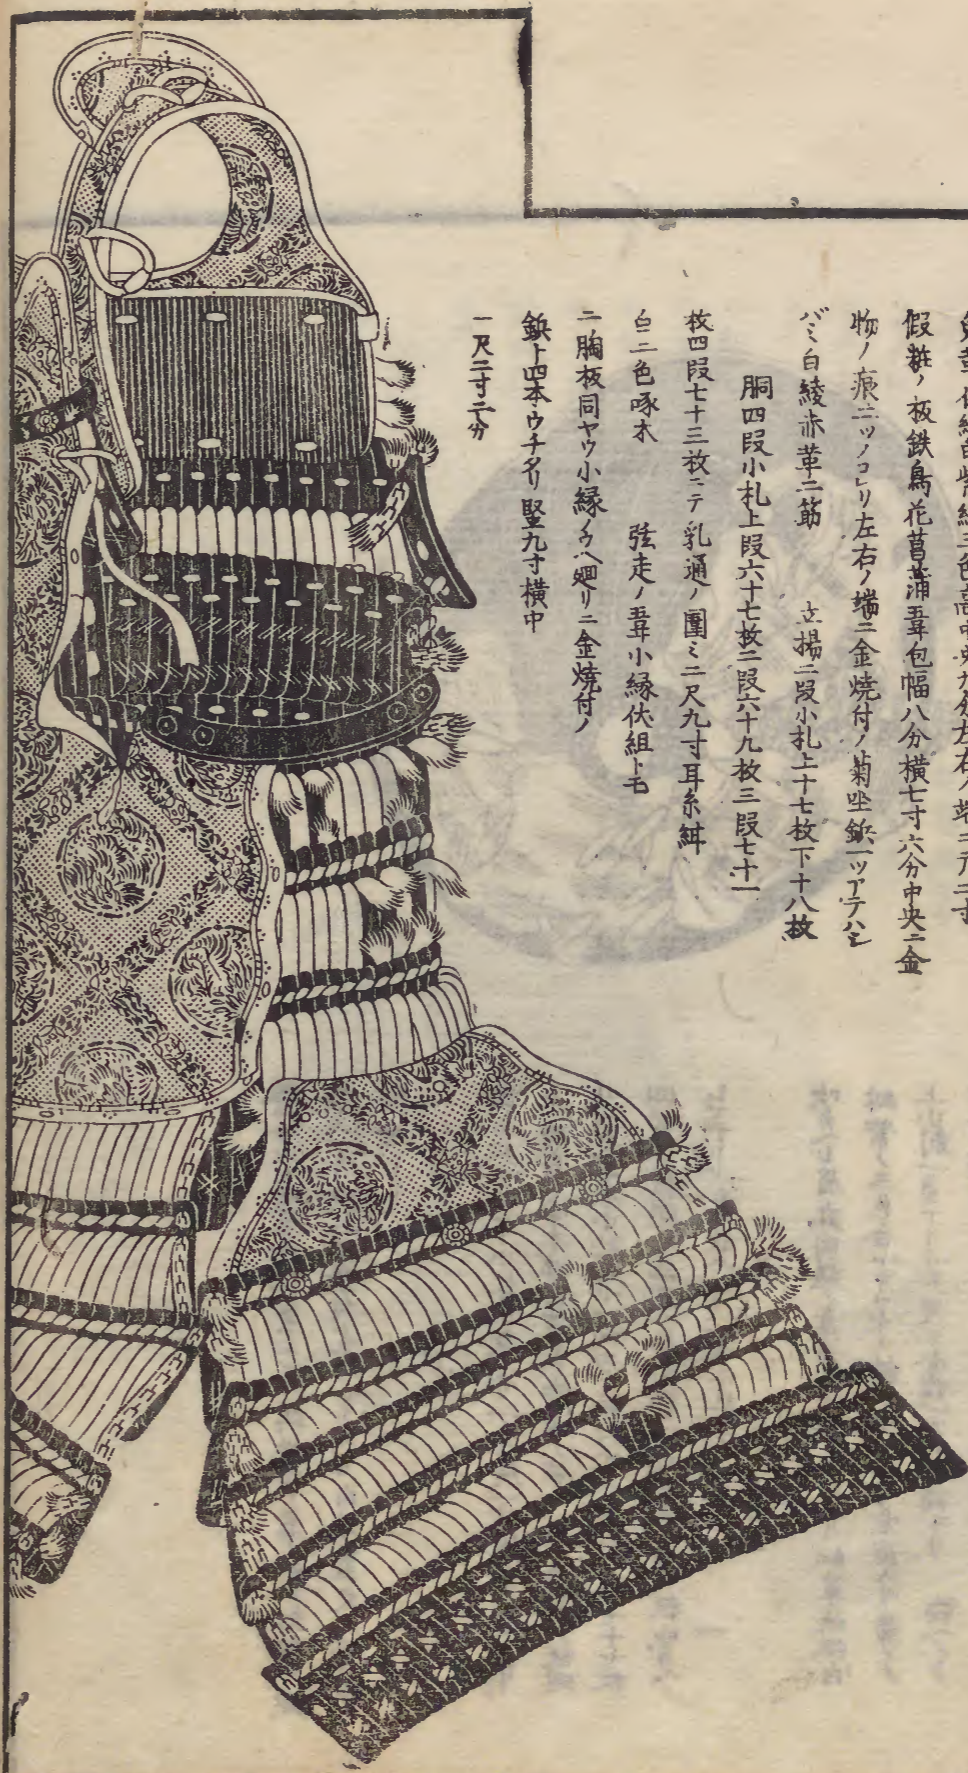 假粧ノ板鉄烏花菖蒲葺包幅八分横七寸六分中央ニ金
物ノ痕二ツノコレリ左右ノ端ニ金焼付ノ菊唑鋲一ツアテハシ
バミ白綾赤革二筋　立揚二段小札上十七枚下十八枚
胴四段小札上段六十七枚二段六十九枚三段七十一
枚四段七十三枚ニテ乳通ノ圍ミ二尺九寸耳糸紺
白二色啄木　弦走ノ葺小縁伏組トモ
ニ胸板同ヤウ小縁ノウヘ廻リニ金焼付ノ
鋲ト四本ウチタリ竪九寸横中
一尺二寸二分